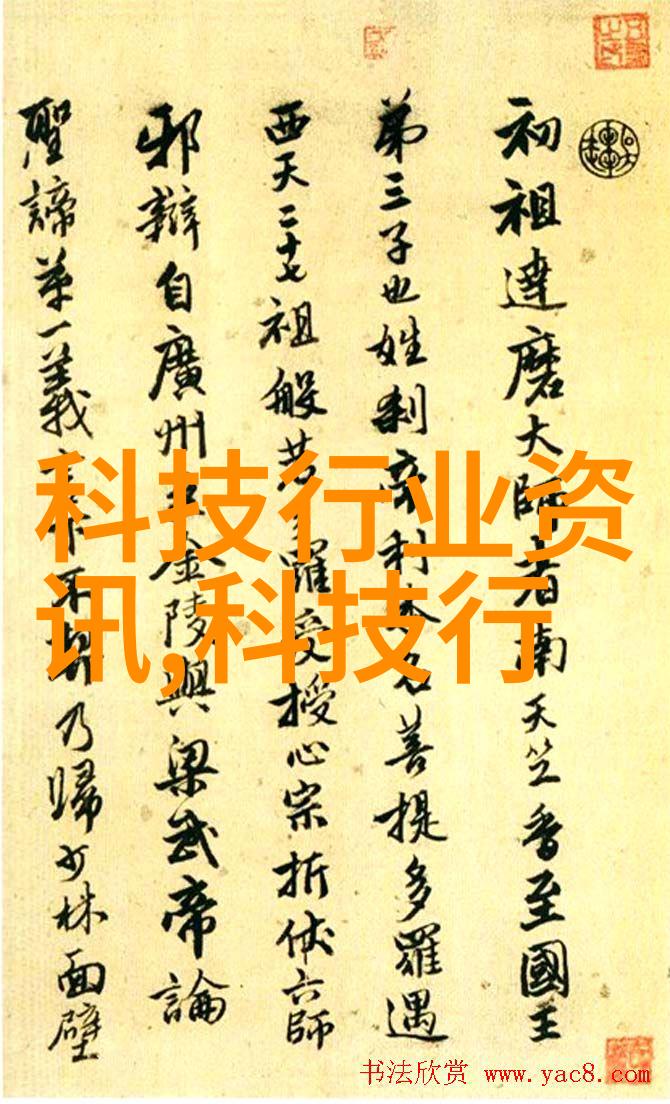 初祖達磨大師者南天竺香至國王
第三子也姓刹帝利本名菩提多羅遇
西天二十七祖般若羅受授心宗折伏六師
邪辯自廣州至金陵與梁武帝論
聖諦第一義不契乃歸少林面壁
科技行业资
讯,科技行
书法欣赏 www.yac8.com